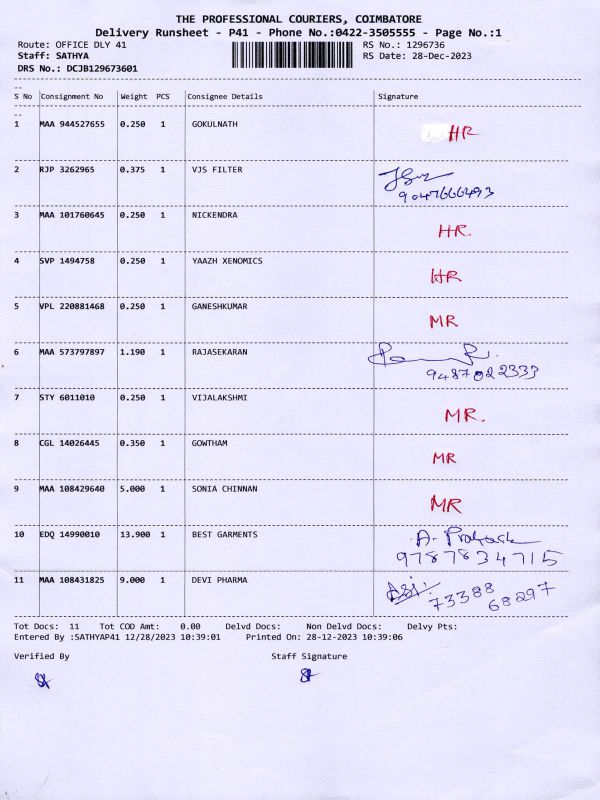 THE PROFESSIONAL COURIERS, COIMBATORE
Delivery Runsheet - P41 - Phone No.:0422-3505555 - Page No.:1
Route: OFFICE DLY 41 RS No.: 1296736
Staff: SATHYA RS Date: 28-Dec-2023
DRS No.: DCJB129673601
S No Consignment No Weight PCS Consignee Details Signature
1 MAA 944527655 0.250 1 GOKULNATH HR
2 RJP 3262965 0.375 1 VJS FILTER
9047666493
3 MAA 101760645 0.250 1 NICKENDRA HR
4 SVP 1494758 0.250 1 YAAZH XENOMICS HR
5 VPL 220881468 0.250 1 GANESHKUMAR MR
6 MAA 573797897 1.190 1 RAJASEKARAN
9487022333
7 STY 6011010 0.250 1 VIJALAKSHMI MR.
8 CGL 14026445 0.350 1 GOWTHAM MR
9 MAA 108429640 5.000 1 SONIA CHINNAN MR
10 EDQ 14990010 13.900 1 BEST GARMENTS A. Prakash
9787834715
11 MAA 108431825 9.000 1 DEVI PHARMA
73388
68297
Tot Docs: 11 Tot COD Amt: 0.00 Delvd Docs: Non Delvd Docs: Delvy Pts:
Entered By :SATHYAP41 12/28/2023 10:39:01 Printed On: 28-12-2023 10:39:06
Verified By Staff Signature